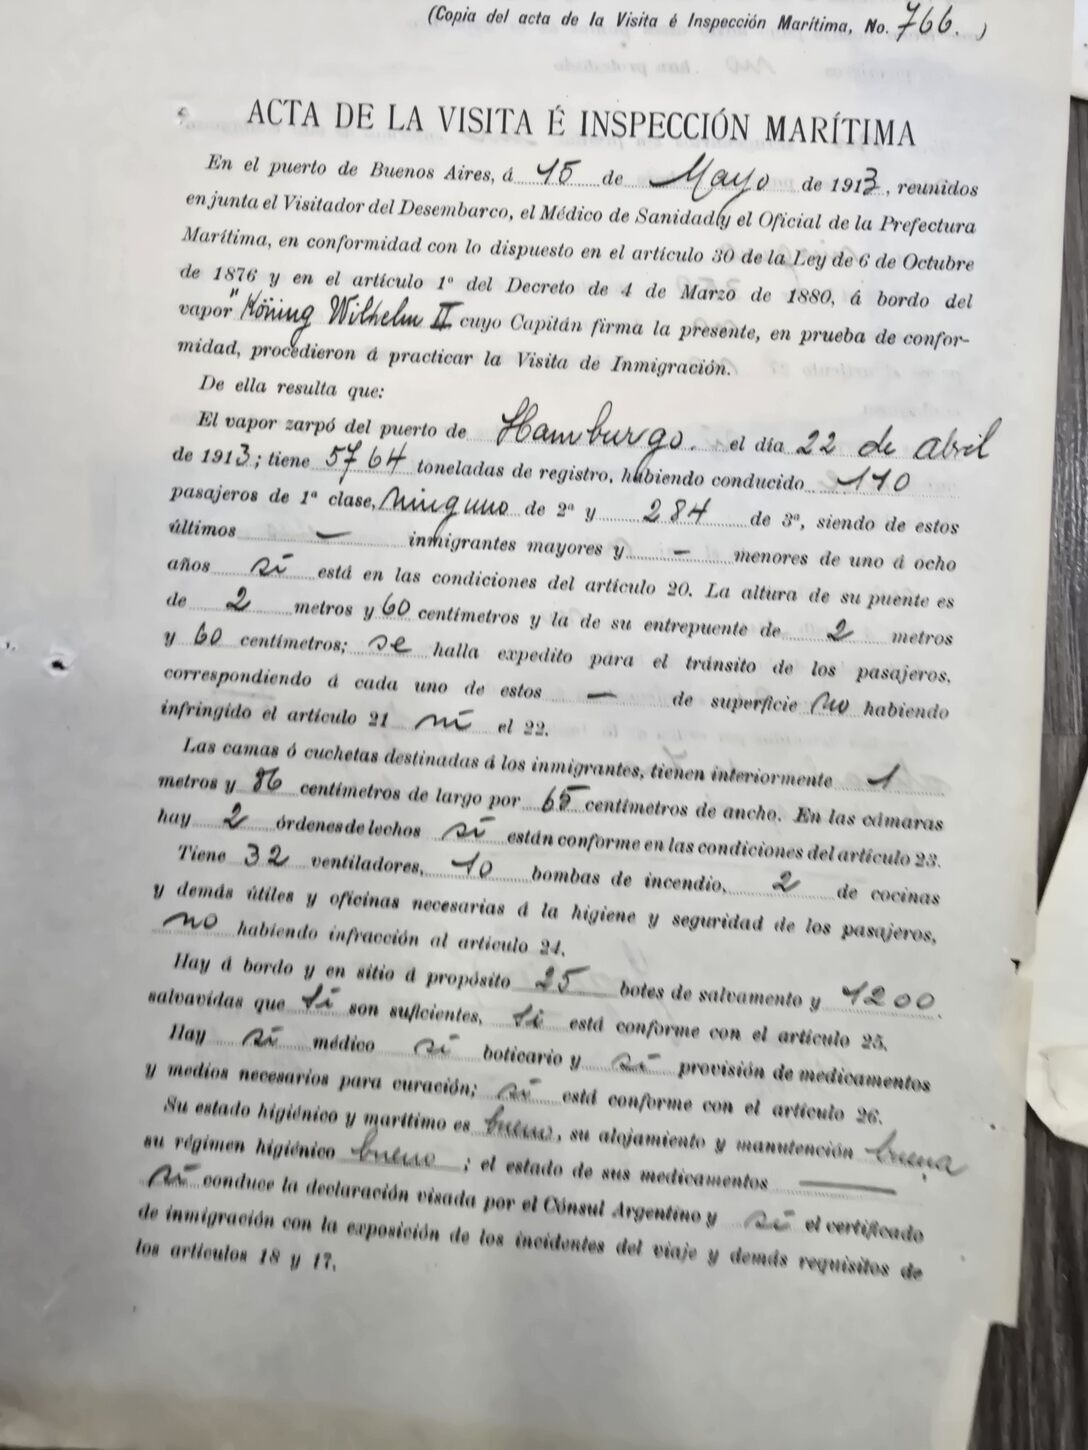 (Copia del acta de la Visita é Inspección Marítima, No. 766.)
ACTA DE LA VISITA É INSPECCIÓN MARÍTIMA
En el puerto de Buenos Aires, á 15 de Mayo de 1913, reunidos
en junta el Visitador del Desembarco, el Médico de Sanidad y el Oficial de la Prefectura
Marítima, en conformidad con lo dispuesto en el artículo 30 de la Ley de 6 de Octubre
de 1876 y en el artículo 1º del Decreto de 4 de Marzo de 1880, á bordo del
vapor "Köning Wilhelm II cuyo Capitán firma la presente, en prueba de confor-
midad, procedieron á practicar la Visita de Inmigración.
De ella resulta que:
El vapor zarpó del puerto de Hamburgo. el día 22 de abril
de 1913; tiene 5764 toneladas de registro, habiendo conducido 110
pasajeros de 1ª clase, ninguno de 2ª y 284 de 3ª, siendo de estos
últimos — inmigrantes mayores y — menores de uno á ocho
años si está en las condiciones del artículo 20. La altura de su puente es
de 2 metros y 60 centímetros y la de su entrepuente de 2 metros
y 60 centímetros; se halla expedito para el tránsito de los pasajeros,
correspondiendo á cada uno de estos — de superficie no habiendo
infringido el artículo 21 ni el 22.
Las camas ó cuchetas destinadas á los inmigrantes, tienen interiormente 1
metros y 86 centímetros de largo por 65 centímetros de ancho. En las cámaras
hay 2 órdenes de lechos si están conforme en las condiciones del artículo 23.
Tiene 32 ventiladores, 10 bombas de incendio, 2 de cocinas
y demás útiles y oficinas necesarias á la higiene y seguridad de los pasajeros,
no habiendo infracción al artículo 24.
Hay á bordo y en sitio á propósito 25 botes de salvamento y 1200
salvavidas que si son suficientes, si está conforme con el artículo 25.
Hay si médico si boticario y si provisión de medicamentos
y medios necesarios para curación; si está conforme con el artículo 26.
Su estado higiénico y marítimo es bueno, su alojamiento y manutención buena
su régimen higiénico bueno; el estado de sus medicamentos —
si conduce la declaración visada por el Cónsul Argentino y si el certificado
de inmigración con la exposición de los incidentes del viaje y demás requisitos de
los artículos 18 y 17.